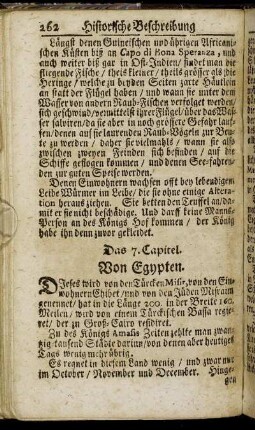 262 Historische Beschreibung
Längst denen Guineischen und übrigen Africani-
schen Küsten biß an Capo di Bona Speranza / und
auch weiter biß gar in Ost-Indien / findet man die
fliegende Fische / theils kleiner / theils grösser als die
Heringe / welche zu beyden Seiten zarte Häutlein
an statt der Flügel haben / und wann sie unter dem
Wasser von andern Raub-Fischen verfolget werden /
sich geschwind / vermittelst ihrer Flügel / über das Was-
ser salviren / da sie aber in noch grössere Gefahr lauf-
fen / denen auf sie laurenden Raub-Vögeln zur Beu-
te zu werden / daher sie vielmahls / wann sie also
zwischen zweyen Feinden sich befinden / auf die
Schiffe geflogen kommen / und denen See-fahren-
den zur guten Speise werden.
Denen Einwohnern wachsen offt bey lebendigem
Leibe Würmer im Leibe / die sie ohne einige Altera-
tion heraus ziehen. Sie betten den Teuffel an / da-
mit er sie nicht beschädige. Und darff keine Manns-
Person an des Königs Hof kommen / der König
habe ihn denn zuvor gekleidet.
Das 7. Capitel.
Von Egypten.
Dieses wird von den Türcken Misir, von den Ein-
wohnern Chibet / und von den Jüden Misraim
genennet hat in die Länge 200. in der Breite 160.
Meilen / wird von einem Türckischen Bassa regie-
ret / der zu Groß-Cairo residiret.
Zu des Königs Amasis Zeiten zehlte man zwantz-
ig-tausend Städte darinn / von denen aber heutiges
Tags wenig mehr übrig.
Es regnet in diesem Land wenig / und zwar nur
im October / November und December. Hinge-
gen